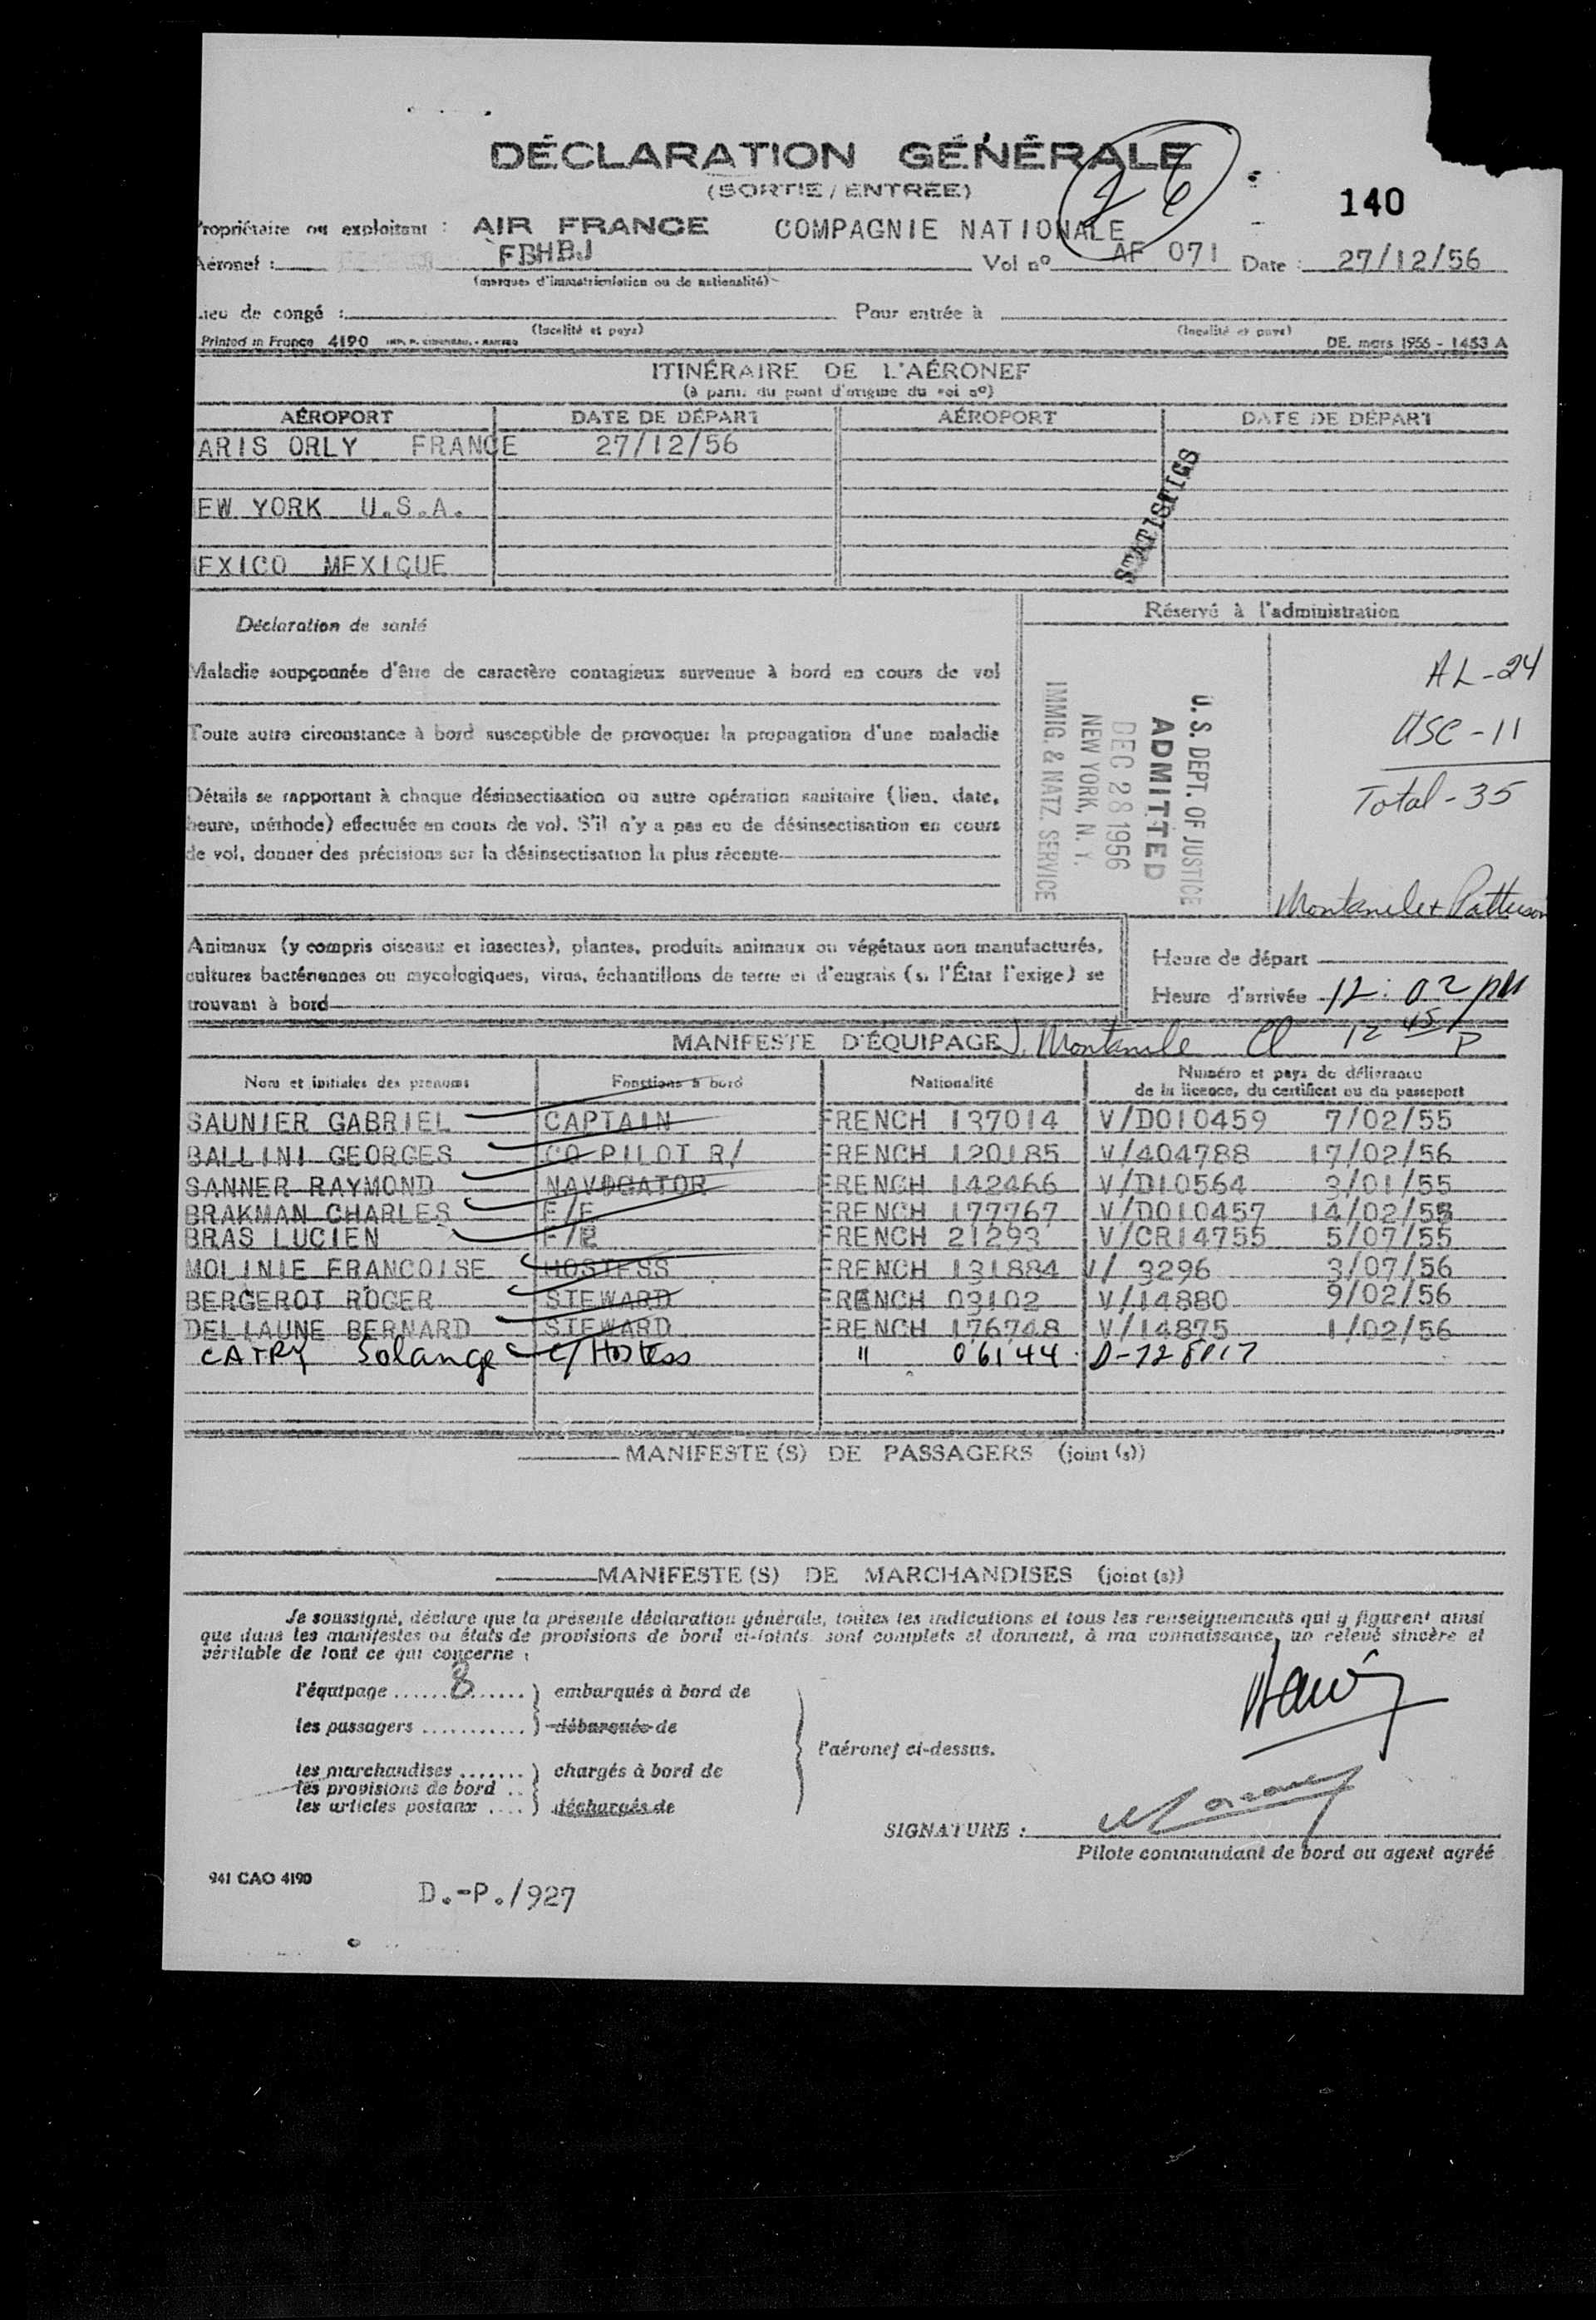 DÉCLARATION GÉNÉRALE
26
(SORTIE / ENTRÉE)
140
Propriétaire ou exploitant : AIR FRANCE COMPAGNIE NATIONALE
Aéronef : FBHBJ Vol nº AF 071 Date : 27/12/56
(marques d'immatriculation ou de nationalité)
Lieu de congé : Pour entrée à
(localité et pays) (localité et pays)
Printed in France 4190 DE. mars 1956 - 1453 A
ITINÉRAIRE DE L'AÉRONEF
(à partir du point d'origine du vol nº)
AÉROPORT DATE DE DÉPART AÉROPORT DATE DE DÉPART
ARIS ORLY FRANCE 27/12/56
STATISTICS
EW YORK U.S.A.
EXICO MEXIQUE
Déclaration de santé
Réservé à l'administration
Maladie soupçonnée d'être de caractère contagieux survenue à bord en cours de vol
Toute autre circonstance à bord susceptible de provoquer la propagation d'une maladie
Détails se rapportant à chaque désinsectisation ou autre opération sanitaire (lieu, date,
heure, méthode) effectuée en cours de vol. S'il n'y a pas eu de désinsectisation en cours
de vol, donner des précisions sur la désinsectisation la plus récente
U. S. DEPT. OF JUSTICE
ADMITTED
DEC 28 1956
NEW YORK, N. Y.
IMMIG. & NATZ. SERVICE
AL-24
USC-11
Total-35
Montanile + Patterson
Animaux (y compris oiseaux et insectes), plantes, produits animaux ou végétaux non manufacturés,
cultures bactériennes ou mycologiques, virus, échantillons de terre et d'engrais (si l'État l'exige) se
trouvant à bord
Heure de départ
Heure d'arrivée 12:02 PM
MANIFESTE D'ÉQUIPAGE J. Montanile Cl 12 45 P
Nom et initiales des prénoms Fonctions à bord Nationalité Numéro et pays de délivrance
de la licence, du certificat ou du passeport
SAUNIER GABRIEL CAPTAIN FRENCH 137014 V/DO10459 7/02/55
BALLINI GEORGES CO PILOT R/ FRENCH 120185 V/404788 17/02/56
SANNER RAYMOND NAVOGATOR FRENCH 142466 V/D10564 3/01/55
BRAKMAN CHARLES F/E FRENCH 177767 V/DO10457 14/02/55
BRAS LUCIEN F/E FRENCH 21293 V/CR14755 5/07/55
MOLINIE FRANCOISE HOSTESS FRENCH 131884 V/ 3296 3/07/56
BERGEROT ROGER STEWARD FRENCH 03102 V/14880 9/02/56
DELLAUNE BERNARD STEWARD FRENCH 176748 V/14875 1/02/56
CATRY Solange c/ Hostess " 06144
MANIFESTE (S) DE PASSAGERS (joint (s))
MANIFESTE (S) DE MARCHANDISES (joint (s))
Je soussigné, déclare que la présente déclaration générale, toutes les indications et tous les renseignements qui y figurent ainsi
que dans les manifestes ou états de provisions de bord ci-joints sont complets et donnent, à ma connaissance, un relevé sincère et
véritable de tout ce qui concerne :
l'équipage ......8...... ) embarqués à bord de
les passagers ............ ) débarqués de
l'aéronef ci-dessus.
les marchandises ....... ) chargés à bord de
les provisions de bord ..
les articles postaux .... ) déchargés de
SIGNATURE :
Pilote commandant de bord ou agent agréé
941 CAO 4190
D.-P./927